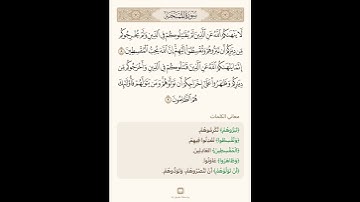 سورة الممتحنة
لَّا يَنْهَىٰكُمُ ٱللَّهُ عَنِ ٱلَّذِينَ لَمْ يُقَـٰتِلُوكُمْ فِى ٱلدِّينِ وَلَمْ يُخْرِجُوكُم
مِّن دِيَـٰرِكُمْ أَن تَبَرُّوهُمْ وَتُقْسِطُوٓا۟ إِلَيْهِمْ إِنَّ ٱللَّهَ يُحِبُّ ٱلْمُقْسِطِينَ ٨
إِنَّمَا يَنْهَىٰكُمُ ٱللَّهُ عَنِ ٱلَّذِينَ قَـٰتَلُوكُمْ فِى ٱلدِّينِ وَأَخْرَجُوكُم مِّن
دِيَـٰرِكُمْ وَظَـٰهَرُوا۟ عَلَىٰٓ إِخْرَاجِكُمْ أَن تَوَلَّوْهُمْ وَمَن يَتَوَلَّهُمْ فَأُو۟لَـٰٓئِكَ
هُمُ ٱلظَّـٰلِمُونَ ٩
معاني الكلمات
﴿تَبَرُّوهُمْ﴾ تُكْرِمُوهُمْ.
﴿وَتُقْسِطُوا﴾ تَعْدِلُوا فِيهِمْ.
﴿الْمُقْسِطِينَ﴾ الْعَادِلِينَ.
﴿وَظَاهَرُوا﴾ عَاوَنُوا.
﴿أَن تَوَلَّوْهُمْ﴾ أَنْ تَنْصُرُوهُمْ، وَتَوَدُّوهُمْ.